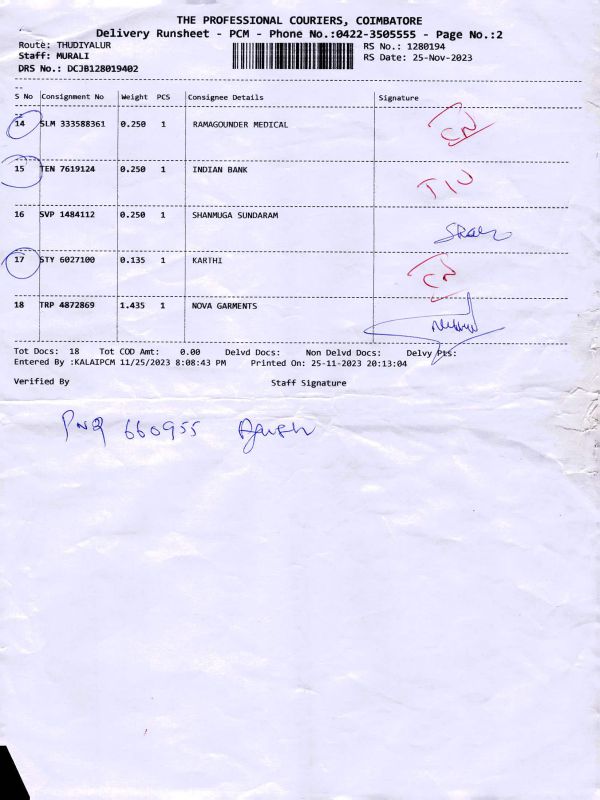 THE PROFESSIONAL COURIERS, COIMBATORE
Delivery Runsheet - PCM - Phone No.:0422-3505555 - Page No.:2
Route: THUDIYALUR RS No.: 1280194
Staff: MURALI RS Date: 25-Nov-2023
DRS No.: DCJB128019402
S No Consignment No Weight PCS Consignee Details Signature
14 SLM 333588361 0.250 1 RAMAGOUNDER MEDICAL CN
15 TEN 7619124 0.250 1 INDIAN BANK
16 SVP 1484112 0.250 1 SHANMUGA SUNDARAM
17 STY 6027100 0.135 1 KARTHI CN
18 TRP 4872869 1.435 1 NOVA GARMENTS
Tot Docs: 18 Tot COD Amt: 0.00 Delvd Docs: Non Delvd Docs: Delvy Pts:
Entered By :KALAIPCM 11/25/2023 8:08:43 PM Printed On: 25-11-2023 20:13:04
Verified By Staff Signature
PNQ 660955